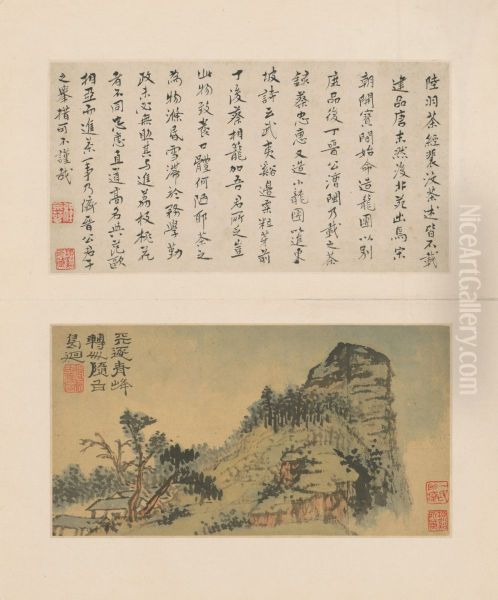 陸羽茶經裴汶茶述皆不載
建品唐末然後北苑出焉宋
朝開寶間始命造龍團以別
庶品後丁晉公漕閩乃載之茶
錄蔡忠惠又造小龍團以進東
坡詩云武夷谿邊粟粒芽前
丁後蔡相籠加吾君所乏豈
此物致養口體何陋耶茶之
為物滌昏雪滯於務學勤
政未必無助其与進荔枝桃花
者不同也忠惠直道高名與范歐
相亞而進茶一事乃儕晉公君子
之舉措可不謹哉
逐青峰
轉隨白
鳥廻
NiceArtGallery.com